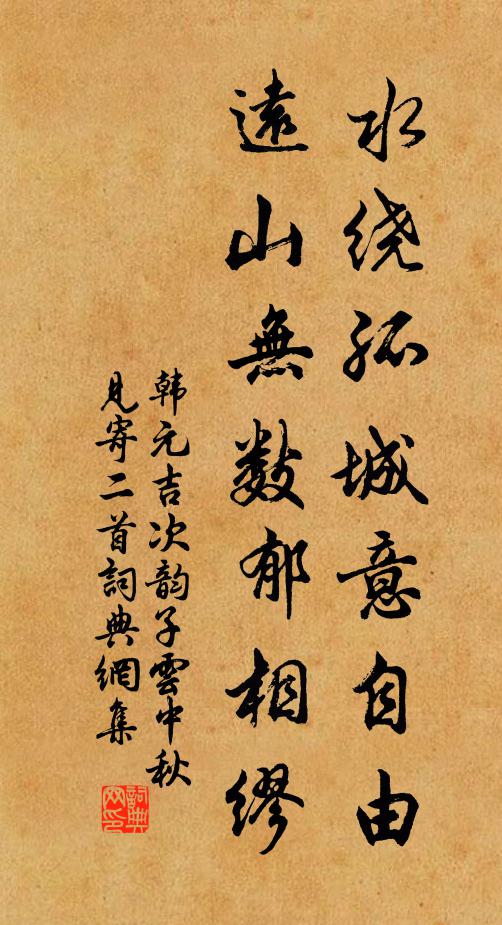 水绕孤城意自由
遠山無数郁相缪
韩元吉次韵子雲中秋
見寄二首詞典網集
詞典网印